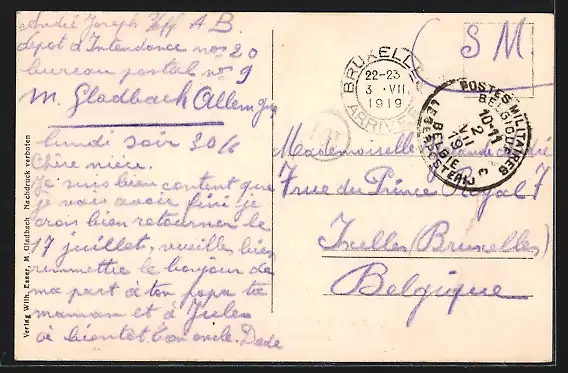 André Joseph A B
depot d'Intendance nos 20
bureau postal nº 9
M. Gladbach Allemagne
lundi soir 30/6
Chère nièce.
Je suis bien content que
je vais avoir fini je
crois bien retourner le
17 juillet, veuillez bien
remmettre le bonjour de
ma part à ton papa ta
maman et à Jules
à bientôt ton oncle. Dede
S M
BRUXELLES
22-23
3 · VII
1919
ARRIVEE
POSTES MILITAIRES
BELGIQUE
10-11
2
VII
19
BELGIE
LEGERPOSTERIJ
Mademoiselle André
7 rue du Prince Royal 7
Ixelles (Bruxelles)
Belgique
Verlag Wilh. Esser, M. Gladbach. Nachdruck verboten